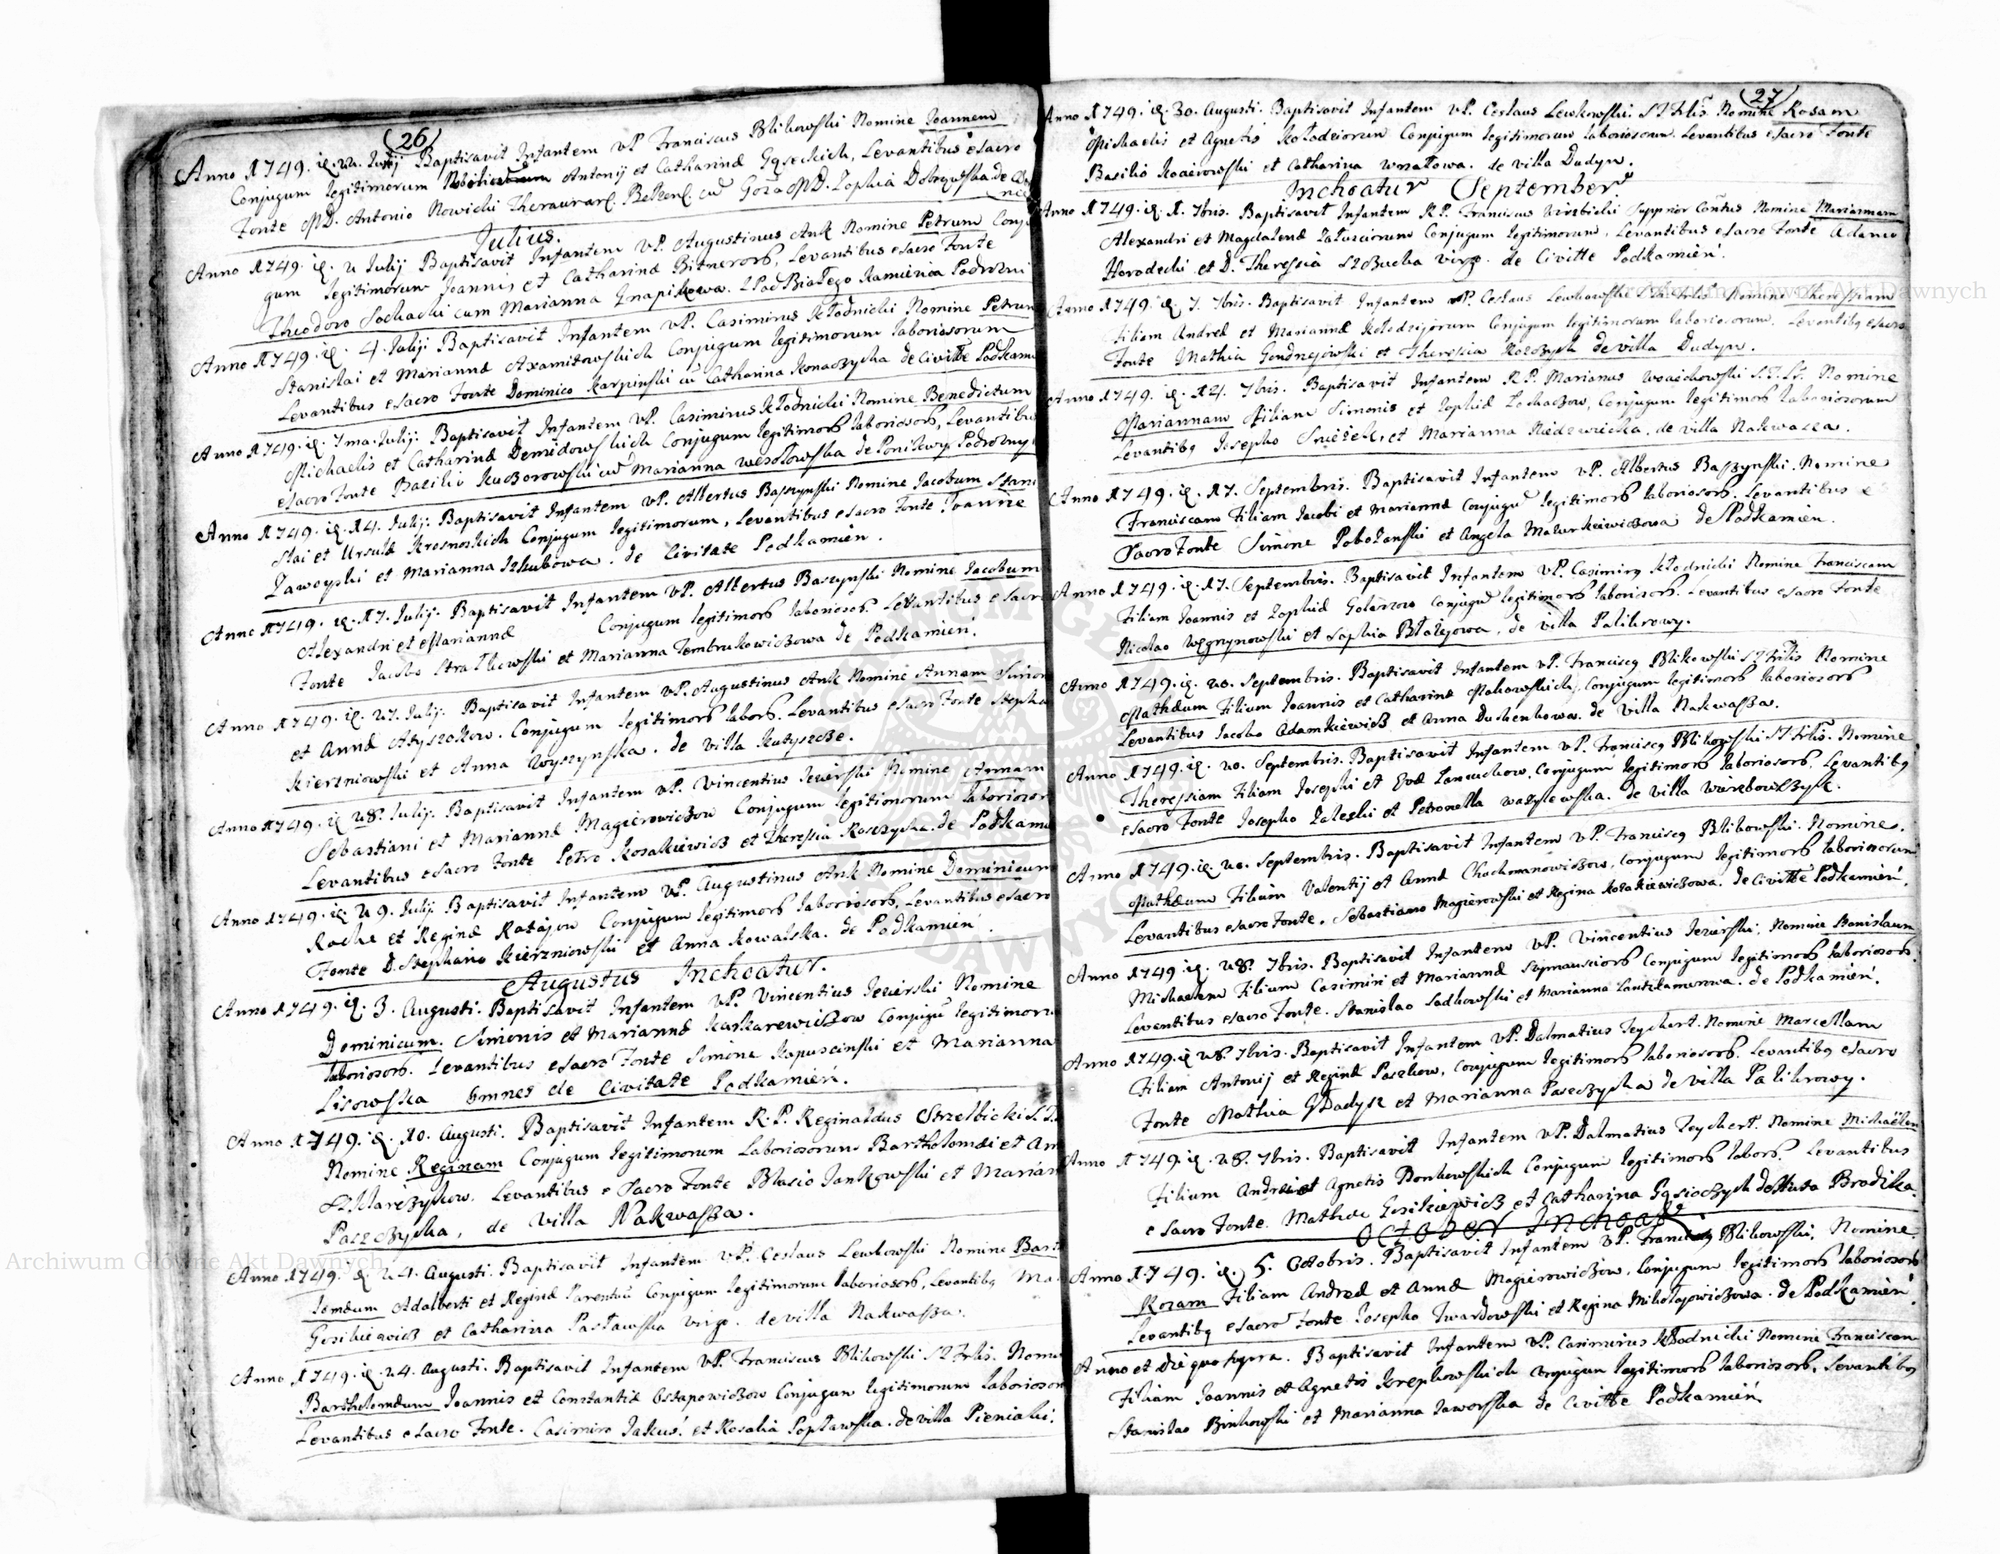 26
Anno 1749. Baptisavit Infantem VP Franciscus Blikowski Nomine Joannem
Conjugum legitimorum Antonij et Catharinæ Gąseckich, Levantibus e Sacro
Fonte MD. Antonio Nowicki cū MD. Zophia Dobrzewska de
Julius.
Anno 1749. Julij Baptisavit Infantem VP. Augustinus Ank Nomine Petrum Conju
gum legitimorum Joannis et Catharinæ Bitnerorũ, Levantibus e Sacro Fonte
Theodoro Sochacki cum Marianna Podrozni
Anno 1749. 4. Julij. Baptisavit Infantem VP. Casimirus Kłodnicki Nomine Petrum
Stanislai et Mariannæ Axamitowskich Conjugum legitimorum laboriosorum
Levantibus e Sacro Fonte Dominico Karpinski cũ Catharina Konaszycha de Civitte Podkamie
Anno 1749. 7ma. Julij. Baptisavit Infantem VP. Casimirus Kłodnicki Nomine Benedictum
Michaelis et Catharinæ Demidowskich Conjugum legitimorũ laboriosorũ, Levantibus
e Sacro Fonte Basilio Kuczorowski cũ Marianna Wesołowska de Ponikwy Podrozny
Anno 1749. 14. Julij. Baptisavit Infantem VP. Albertus Baszynski Nomine Jacobum Stani
slai et Ursulæ Krosnoskich Conjugum legitimorum, Levantibus e Sacro Fonte Joanne
Zawoyski et Marianna de Civitate Podkamien.
Anno 1749. 17. Julij. Baptisavit Infantem VP. Albertus Baszynski Nomine Jacobum
Alexandri et Mariannæ Conjugum legitimorũ laboriosorũ. Levantibus e Sacro
Fonte Jacobo et Marianna Tembrukowiczowa de Podkamień.
Anno 1749. 27. Julij. Baptisavit Infantem VP. Augustinus Ank Nomine Annam Simon
et Annæ Conjugum legitimorũ laborũ. Levantibus e Sacro Fonte Stepha
Kierzniowski et Anna Woyszynska. de villa Kutyszcze.
Anno 1749. 28. Julij. Baptisavit Infantem VP. Vincentius Jezierski Nomine Annam
Sebastiani et Mariannæ Magierowiczow Conjugum legitimorum laboriosor
Levantibus e Sacro Fonte Petro Kosakiewicz et Theressia Kaszycha. de Podkamie
Anno 1749. 29. Julij Baptisavit Infantem VP. Augustinus Ank Nomine Dominicum
Rochi et Reginæ Ratajow Conjugum legitimorũ laboriosorũ, Levantibus e Sacro
Fonte D. Stephano Kierzniowski et Anna Kowalska. de Podkamień.
Augustus Inchoatur.
Anno 1749. 3. Augusti. Baptisavit Infantem VP. Vincentius Jezierski Nomine
Dominicum. Simonis et Mariannæ Kaskarewiczow Conjugũ legitimor.
laboriosorũ. Levantibus e Sacro Fonte Simone Kapuscinski et Marianna
Lisowska omnes de Civitate Podkamień.
Anno 1749. 10. Augusti. Baptisavit Infantem R.P. Reginaldus Strzelbicki
Nomine Reginam Conjugum legitimorum Laboriosorum Bartholomæi et An
Levantibus e Sacro Fonte Błasio Jankowski et Marian
Paszczycha, de Villa Nakwasza.
Anno 1749. 24. Augusti. Baptisavit Infantem VP. Ceslaus Lewkowski Nomine Barto
lomæum Adalberti et Reginæ Parentũ Conjugum legitimorum laboriosorũ, Levantibq Ma
Gosikiewicz et Catharina Pastawska virgo. de villa Nakwasza.
Anno 1749. 24. Augusti. Baptisavit Infantem VP. Franciscus Blikowski Nomi
Bartholomæum Joannis et Constantiæ Ostapowiczow Conjugum legitimorum laborioson
Levantibus e Sacro Fonte. Casimiro et Rosalia Popławska. de villa Pieniaki.
27
Anno 1749. 30. Augusti. Baptisavit Infantem VP. Ceslaus Lewkowski. Nomine Rosam
Michaelis et Agnetis Kołodziorum Conjugum legitimorum laboriosorum Levantibus e Sacro Fonte
Basilio et Catharina de villa Dudyn.
Inchoatur September
Anno 1749. 1. 7bris. Baptisavit Infantem R.P. Franciscus Wirzbicki Supprior Conṽtus Nomine Mariannam
Alexandri et Magdalenæ Conjugum legitimorum, Levantibus e Sacro Fonte Adamo
Horodecki et D. Theressia virgo. de Civitte Podkamień.
Anno 1749. 7. 7bris. Baptisavit Infantem VP. Ceslaus Lewkowski Nomine Theressiam
Filiam Andreæ et Mariannæ Kołodzijorum Conjugum legitimorum laboriosorum. Levantibq e Sacro
Fonte Mathia et Theresia de villa Dudyn.
Anno 1749. 14. 7bris. Baptisavit Infantem R.P. Marianus Woiciechowski Nomine
Mariannam Filiam Simonis et Zophiæ Lochaczow, Conjugum legitimorũ laboriosorum
Levantibq Josepho et Marianna Niedzwiecka, de villa Nakwasza.
Anno 1749. 17. Septembris. Baptisavit Infantem VP. Albertus Baszynski. Nomine
Franciscam Filiam Jacobi et Mariannæ Conjugũ legitimorũ laboriosorũ. Levantibus e
Sacro Fonte Simone et Angela Mazurkiewiczowa de Podkamien.
Anno 1749. 17. Septembris. Baptisavit Infantem VP. Casimirq Kłodnicki Nomine Franciscam
Filiam Joannis et Zophiæ Conjugũ legitimorũ laboriosorũ. Levantibus e Sacro Fonte
Nicolao Węgrzynowski et Sophia Błażejowa, de villa Palikrowy.
Anno 1749. 20. Septembris. Baptisavit Infantem VP. Franciscq Blikowski Nomine
Mathæum Filium Joannis et Catharinæ Makowskich, Conjugum legitimorũ laboriosorũ
Levantibus Jacobo Adamkiewicz et Anna Duchenkowa. de villa Nakwasza.
Anno 1749. 20. Septembris. Baptisavit Infantem VP. Franciscq Blikowski Nomine
Theressiam Filiam Josephi et Evæ Lancuchow, Conjugum legitimorũ laboriosorũ. Levantibq
e Sacro Fonte Josepho Zaleski et Petronella Wasylewska. de villa
Anno 1749. 20. Septembris. Baptisavit Infantem VP. Franciscq Blikowski. Nomine
Mathæum Filium Valentij et Annæ Chochomanowiczow, Conjugum legitimorũ laboriosorum
Levantibus e Sacro Fonte. Sebastiano Magierowski et Regina Kozakiewiczowa. de Civitte Podkamień.
Anno 1749. 28. 7bris. Baptisavit Infantem VP. Vincentius Jezierski. Nomine Stanislaum
Michaelem Filium Casimiri et Mariannæ Conjugum legitimorũ laboriosorũ
Levantibus e Sacro Fonte. Stanislao Sadkowski et Marianna de Podkamień.
Anno 1749. 28. 7bris. Baptisavit Infantem VP. Dalmatius Teychert. Nomine Marcellam
Filiam Antonij et Reginæ Paszkow, Conjugum legitimorũ laboriosorũ. Levantibq e Sacro
Fonte Mathia et Marianna Paszczycha de villa Palikrowy.
Anno 1749. 28. 7bris. Baptisavit Infantem VP. Dalmatius Teychert. Nomine Michaëlem
Filium Andreæ et Agnetis Conjugum legitimorũ laborũ. Levantibus
e Sacro Fonte. Mathæo Gosikiewicz et Catharina de Huta Brodzka.
October Inchoat
Anno 1749. 5. Octobris. Baptisavit Infantem VP. Franciscq Blikowski. Nomine
Rosam Filiam Andreæ et Annæ Magierowiczow, Conjugum legitimorũ laboriosorũ
Levantibq e Sacro Fonte Josepho Twardowski et Regina Mikołajowiczowa. de Podkamień.
Anno et die quo supra. Baptisavit Infantem VP. Casimirus Kłodnicki Nomine Franciscam
Filiam Joannis et Agnetis Krepkowskich Conjugum legitimorũ laboriosorũ. Levantibq
Stanislao Binkowski et Marianna Jaworska de Civitte Podkamień
Archiwum Główne Akt Dawnych
Archiwum Główne Akt Dawnych
ARCHIWUM GŁÓWNE AKT DAWNYCH